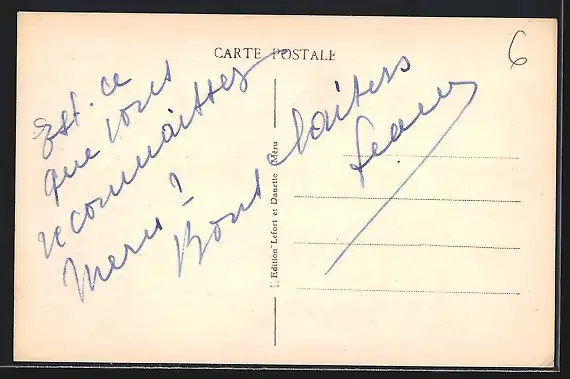 CARTE POSTALE
6
Est. ce
que vous
reconnaissez
Meru ?
Bons baisers
Jeanne
Edition Lefort et Danette Méru